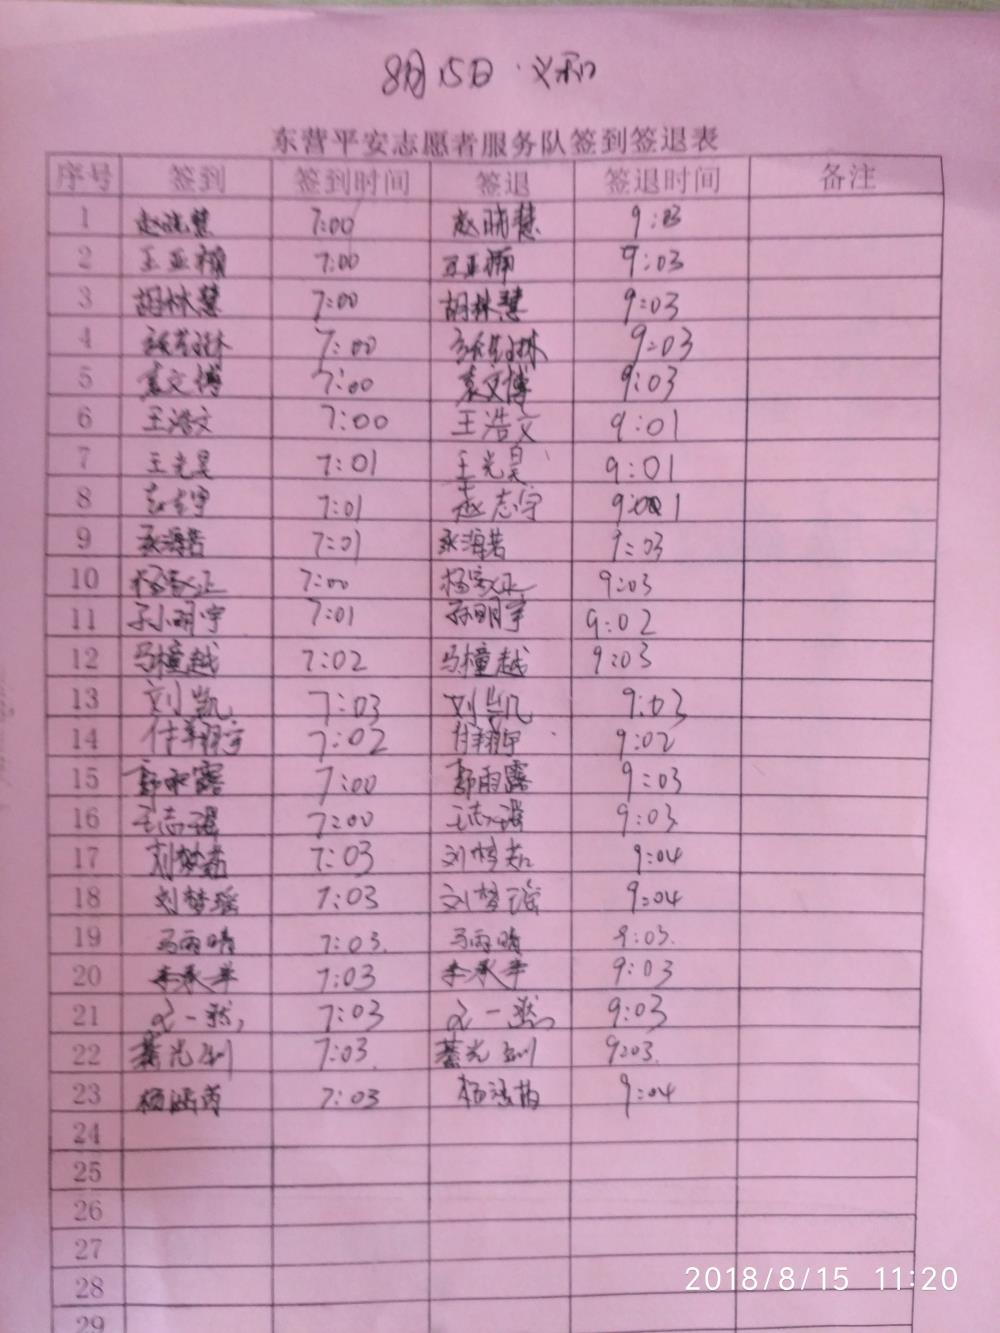 8月15日·义和
东营平安志愿者服务队签到签退表
序号 签到 签到时间 签退 签退时间 备注
1 赵晓慧 7:00 赵晓慧 9:03
2 王亚楠 7:00 王亚楠 9:03
3 胡林慧 7:00 胡林慧 9:03
4 7:00 9:03
5 袁文博 7:00 袁文博 9:03
6 王浩文 7:00 王浩文 9:01
7 王光昊 7:01 王光昊 9:01
8 赵志宇 7:01 赵志宇 9:01
9 7:01 9:03
10 7:00 9:03
11 孙明宇 7:01 孙明宇 9:02
12 马橦越 7:02 马橦越 9:03
13 刘凯 7:03 刘凯 9:03
14 付翔宇 7:02 付翔宇 9:02
15 郭雨露 7:00 郭雨露 9:03
16 王志强 7:00 王志强 9:03
17 7:03 9:04
18 刘梦瑶 7:03 刘梦瑶 9:04
19 马雨晴 7:03. 马雨晴 9:03.
20 李承羊 7:03 李承羊 9:03
21 一 7:03 一 9:03
22 綦光圳 7:03. 綦光圳 9:03.
23 杨 7:03 杨 9:04
24
25
26
27
28
29
2018/8/15 11:20